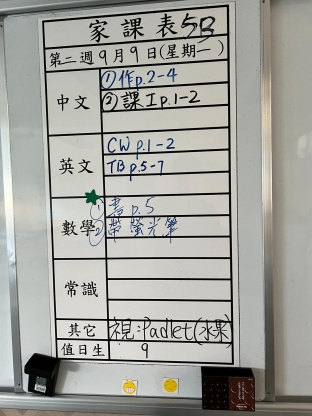 家課表5B
第二週9月9日(星期一)
中文
①作p.2-4
②課I p.1-2
英文
CW p.1-2
TB p.5-7
數學
①書p.5
②帶螢光筆
常識
其它
視:Padlet(水果)
值日生
9